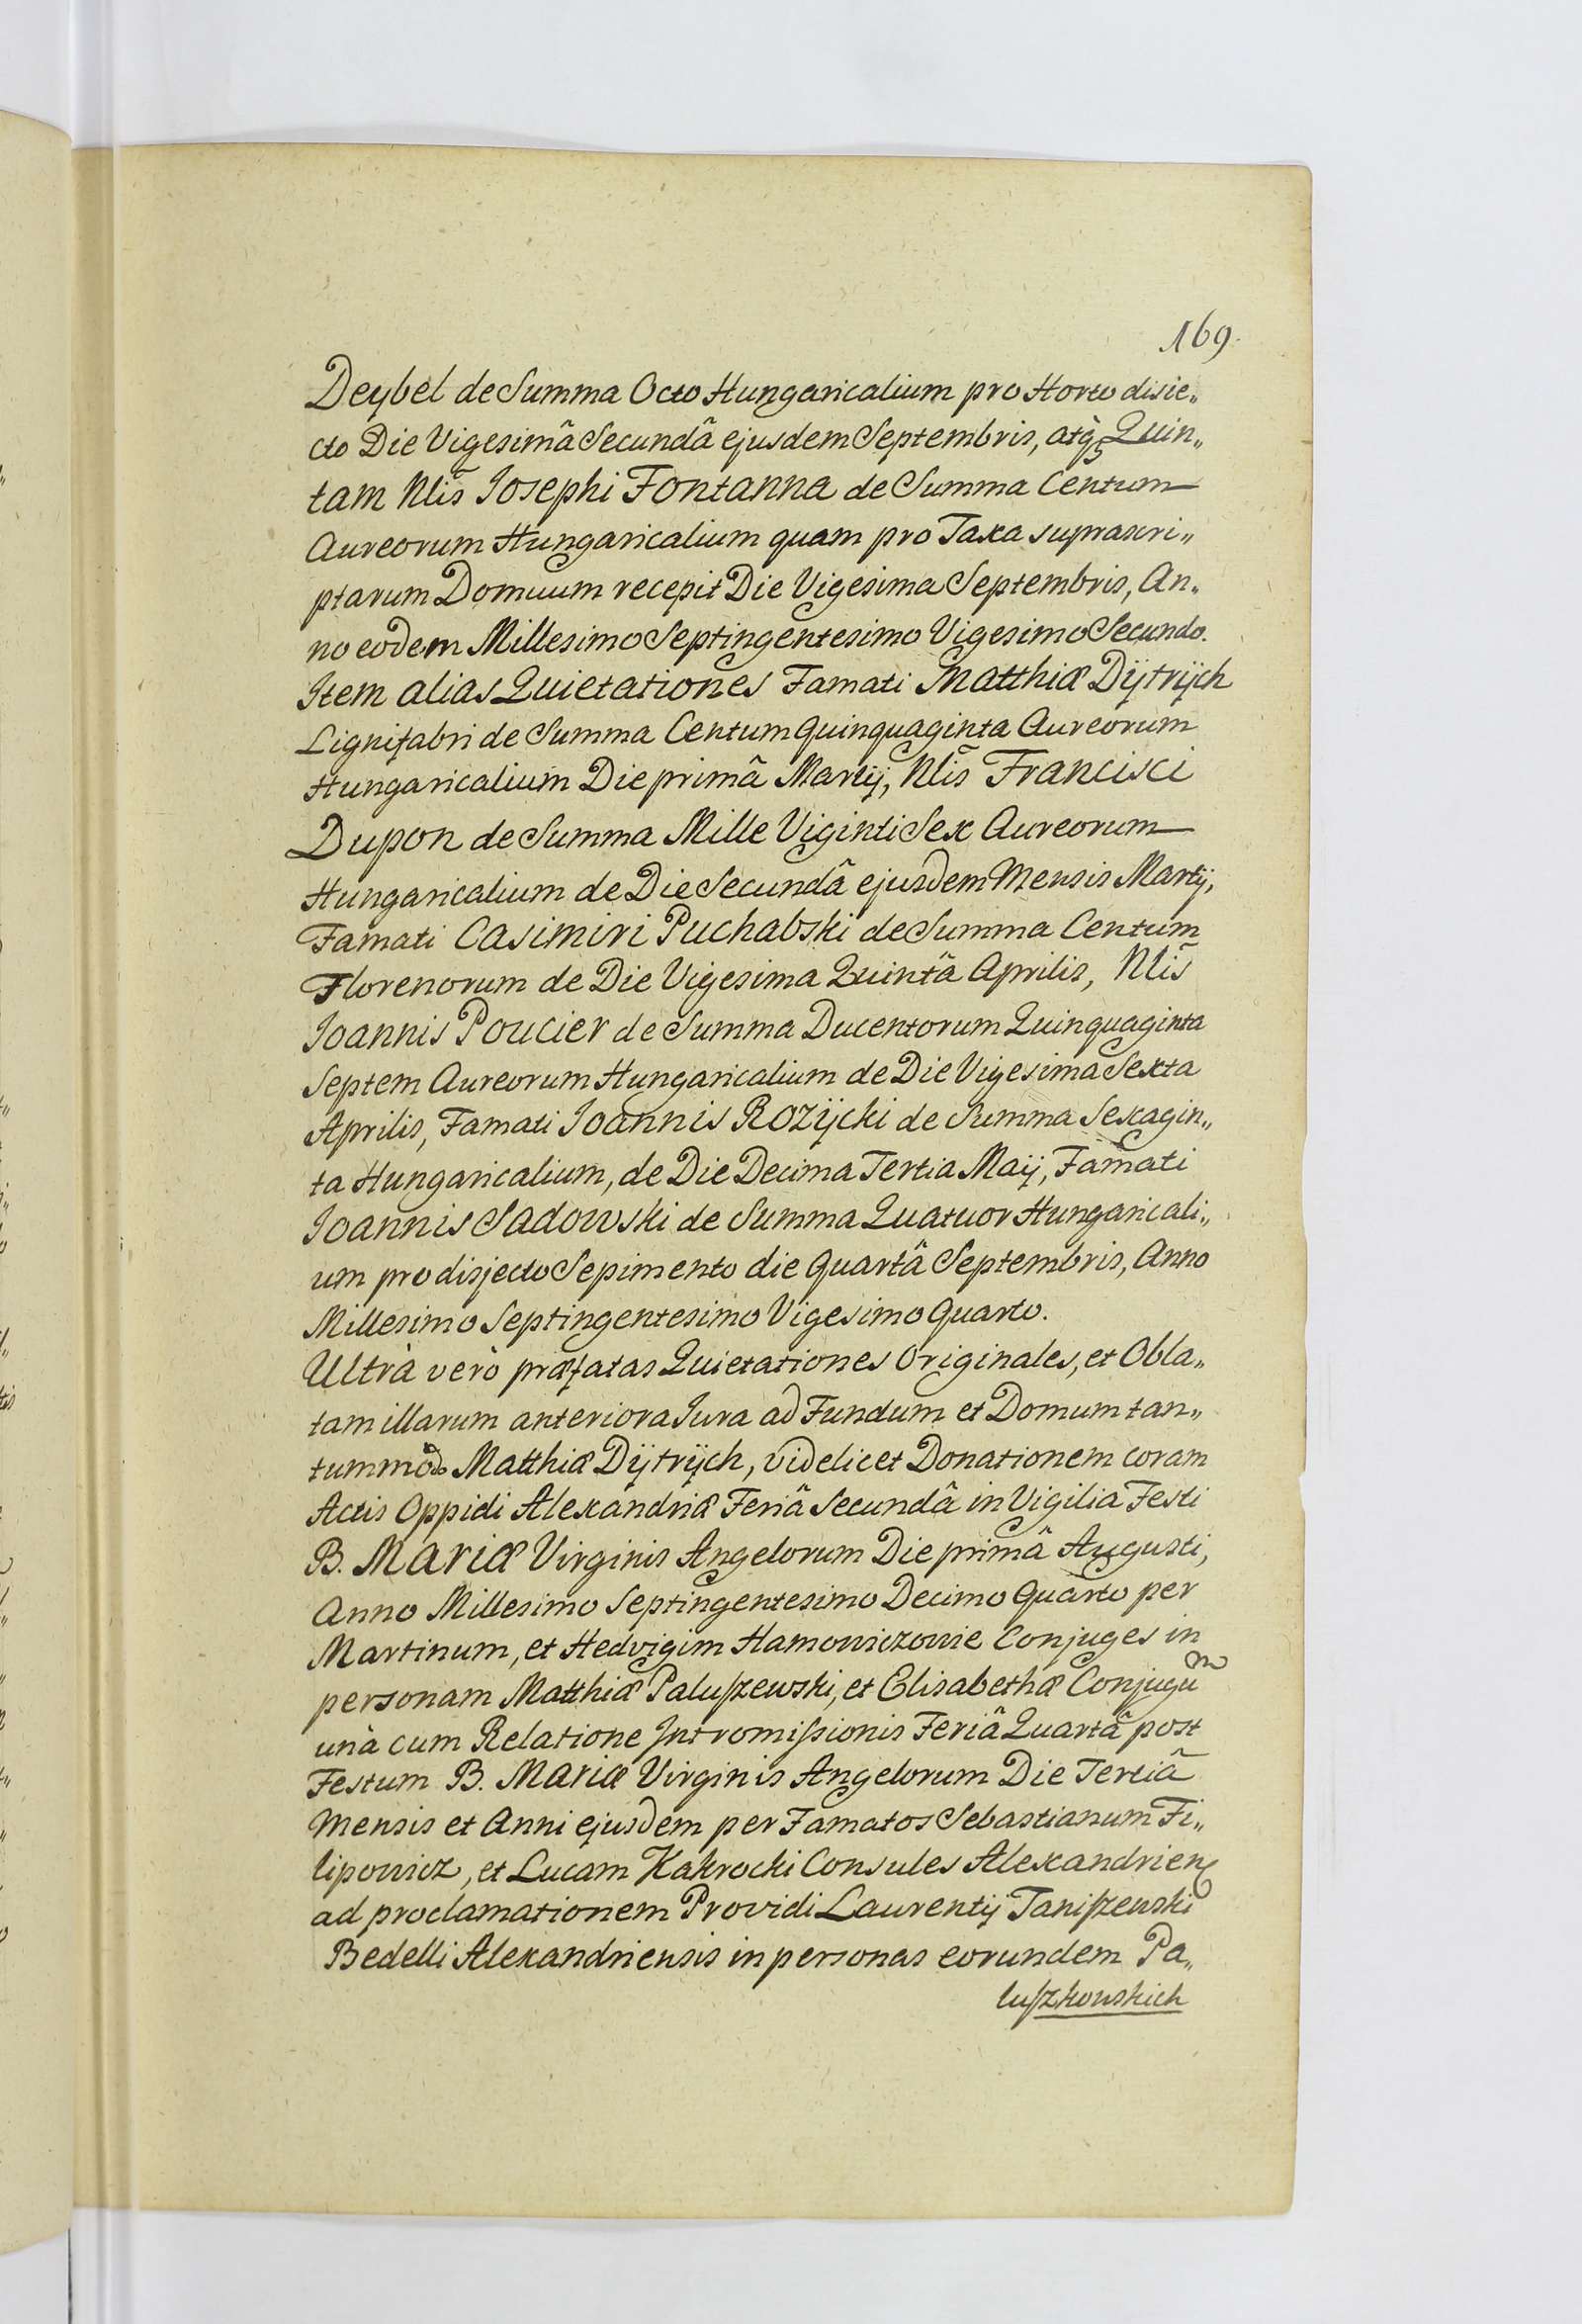 169.
Deybel de Summa Octo Hungaricalium pro Horto disie„
cto Die Vigesimâ Secundâ ejusdem Septembris, atq̀ʒ Quin„
tam Nlis̃ Josephi Fontanna de Summa Centum
Aureorum Hungaricalium quam pro Taxa suprascri„
ptarum Domuum recepit Die Vigesima Septembris, An„
no eodem Millesimo Septingentesimo Vigesimo Secundo.
Item alias Quietationes Famati Matthiæ Dÿtrÿch
Lignifabri de Summa Centum Quinquaginta Aureorum
Hungaricalium Die primâ Martij, Nlis̃ Francisci
Dupon de Summa Mille Viginti Sex Aureorum
Hungaricalium de Die Secundâ ejusdem Mensis Martij,
Famati Casimiri Puchalski de Summa Centum
Florenorum de Die Vigesima Quintâ Aprilis, Nlis̃
Joannis Poucier de Summa Ducentorum Quinquaginta
Septem Aureorum Hungaricalium de Die Vigesima Sexta
Aprilis, Famati Joannis Rozÿcki de Summa Sexagin„
ta Hungaricalium, de Die Decima Tertia Maij, Famati
Joannis Sadowski de Summa Quatuor Hungaricali„
um pro disjecto Sepimento die Quartâ Septembris, Anno
Millesimo Septingentesimo Vigesimo Quarto.
Ultrà verò præfatas Quietationes Originales, et Obla„
tam illarum anteriora Jura ad Fundum et Domum tan„
tummodo Matthiæ Dÿtrÿch, videlicet Donationem coram
Actis Oppidi Alexandriæ Feriâ Secundâ in Vigilia Festi
B. Mariæ Virginis Angelorum Die primâ Augusti,
Anno Millesimo Septingentesimo Decimo Quarto per
Martinum, et Hedvigim Hamowiczowie Conjuges in
personam Matthiæ Palußewski, et Elisabethæ Conjugum
unà cum Relatione Intromißionis Feriâ Quartâ post
Festum B. Mariæ Virginis Angelorum Die Tertiâ
Mensis et Anni ejusdem per Famatos Sebastianum Fi„
lipowicz, et Lucam Kakrocki Consules Alexandrien
ad proclamationem Providi Laurentij Tanißewski
Bedelli Alexandriensis in personas eorundem Pa„
lußkowskich